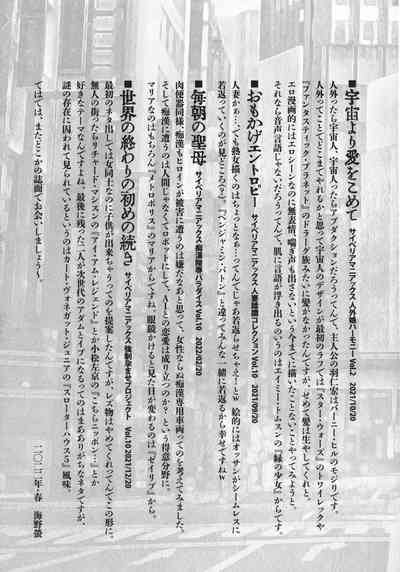 ■宇宙より愛をこめて サイベリアマニアックス 人外娘ハーモニー Vol.7 2021/10/20
人外ったら宇宙人、宇宙人ったらアブダクションだろうってんで、主人公の羽仁宏はバーニー・ヒルのモジリです。
人外ってことでどこまでやれるかと思って宇宙人のデザインが最初のラフでは『スター・ウォーズ』のトワイレックや
『ファンタスティック・プラネット』のドラーグ族みたいに髪がなかったんですが、せめて髪は生やしてくれと。
エロ漫画的にはエロシーンなのに無表情、喘ぎ声も出さないという今までに描いたことないことやってみようと。
それなら音声言語じゃないだろうってんで、肌に言語が浮き出るのいうのはエイミー・トムスンの『緑の少女』からです。
■おもかげエントロピー サイベリアマニアックス 人妻略奪コレクション Vol.10 2021/09/20
人妻かぁ…でも熟女描くのはちょっとなぁ…ってんでじゃあ若返らせちゃえ!とw 絵的にはオッサンがシームレスに
若返っていくのが見どころかな?『ベンジャミン・バトン』と違ってふたな一緒に若返るから幸せですねw
■毎朝の聖母 サイベリアマニアックス 痴漢陵辱パラダイス Vol.10 2022/02/20
肉便器同様、痴漢もヒロインが被害に遭うのは嫌だなぁと思って、女性ならぬ痴漢専用車両ってのし考えてみました。
そして痴漢に遭うのは人間じゃなくてロボットにして、AIとの恋愛は成り立つのか?という得意分野に。
マリアなのはもちろん『メトロポリス』のマリアからですね。眼鏡かけると見た目が変わるのは『ゼイリブ』から。
■世界の終わりの初めの続き サイベリアマニアックス 強制孕ませプロジェクト Vol.10 2021/12/20
最初のネタ出しでは女同士なのに子供が出来ちゃうってのを提案したんですが、レズ物はやめてくれってんでこの形に。
無人の街ったらリチャード・マシスンの『アイ・アム・レジェンド』とか小松左京の『こちらニッポン…』とか
好きなテーマなんですよね。最後に残った二人が次世代のアダムとイブになるってのはまああありがちなネタですが、
謎の存在に囚われて見られているというのはカート・ヴォネガット・ジュニアの『スローターハウス5』風味。
ではでは、またどこかの誌面でお会いしましょう〜。
二〇二二年・春 海野螢